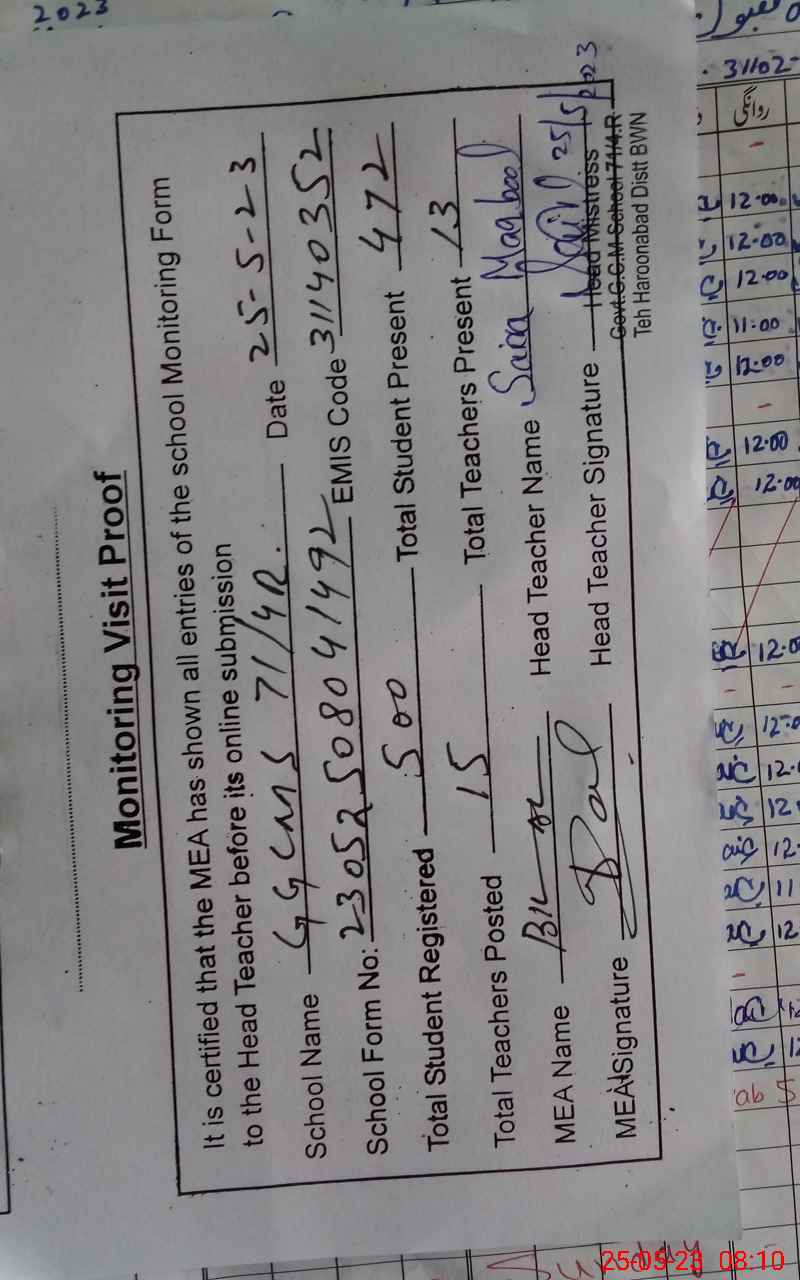 Monitoring Visit Proof
It is certified that the MEA has shown all entries of the school Monitoring Form
to the Head Teacher before its online submission
School Name GGCMS 71/4R. Date 25-5-23
School Form No: 23052508041492 EMIS Code 31140352
Total Student Registered 500 Total Student Present 472
Total Teachers Posted 15 Total Teachers Present 13
MEA Name Head Teacher Name Saira Maqbool
MEA Signature Head Teacher Signature 25/5/2023
Head Mistress
Govt.G.C.M School 71/4.R
Teh Haroonabad Distt BWN
2023
31102-
روانگی
12.00
12.00
12.00
11:00
12.00
12.00
12.00
12.0
12.0
12.
12
12.
11
12
ab 5
25-05-23 08:10